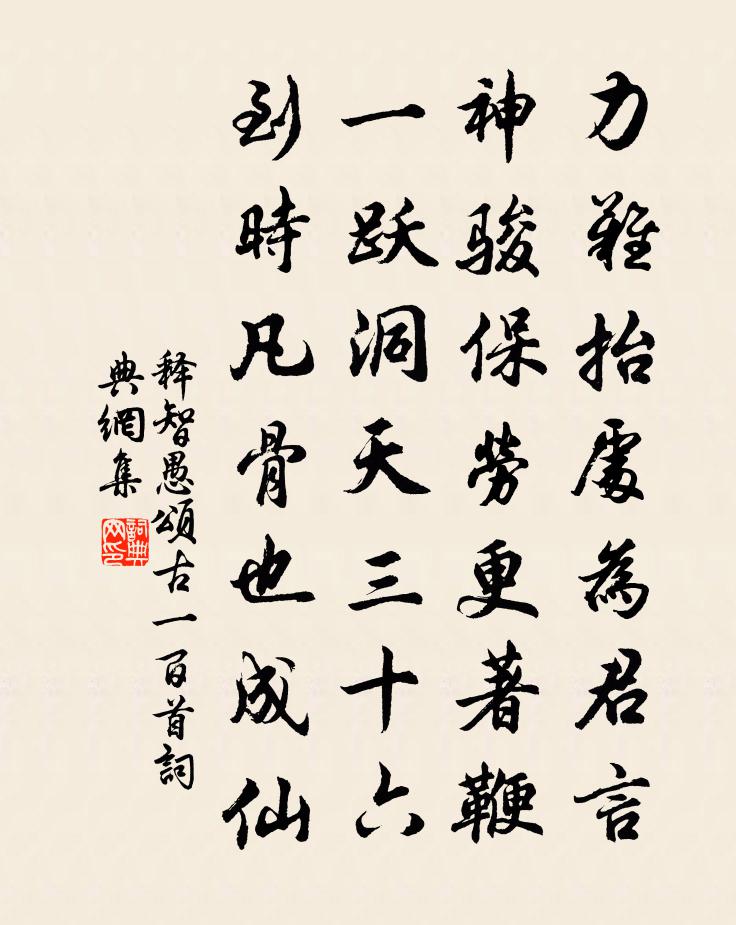 力難抬處為君言
神骏保勞更著鞭
一跃洞天三十六
到時凡骨也成仙
释智愚頌古一百首詞
典網集
詞典網印